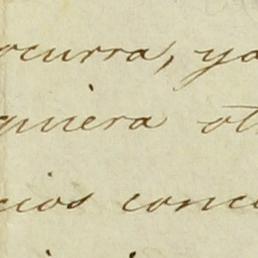 ocurra, ya
quiera ot
cios conc